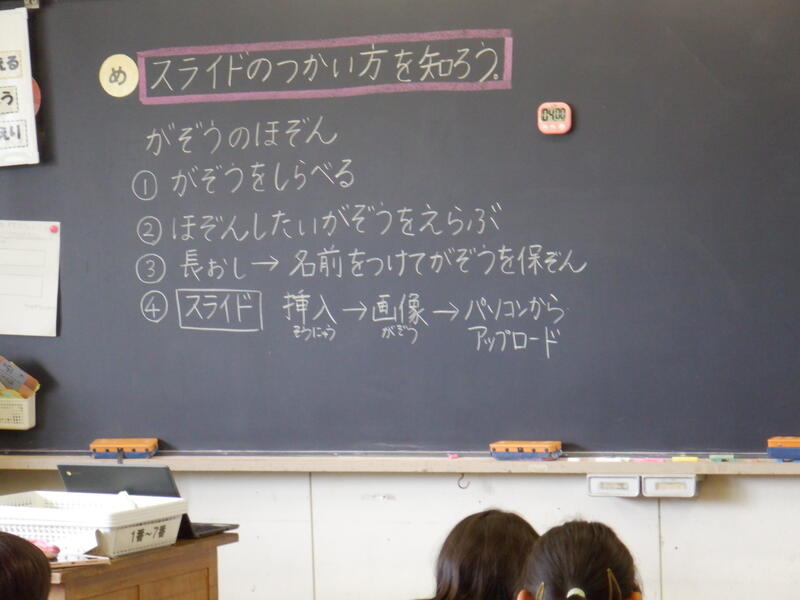 め スライドのつかい方を知ろう。
がぞうのほぞん
① がぞうをしらべる
② ほぞんしたいがぞうをえらぶ
③ 長おし→名前をつけてがぞうを保ぞん
④ スライド 挿入→画像→パソコンから
そうにゅう がぞう アップロード
04:00
える
う
えり
1番~7番